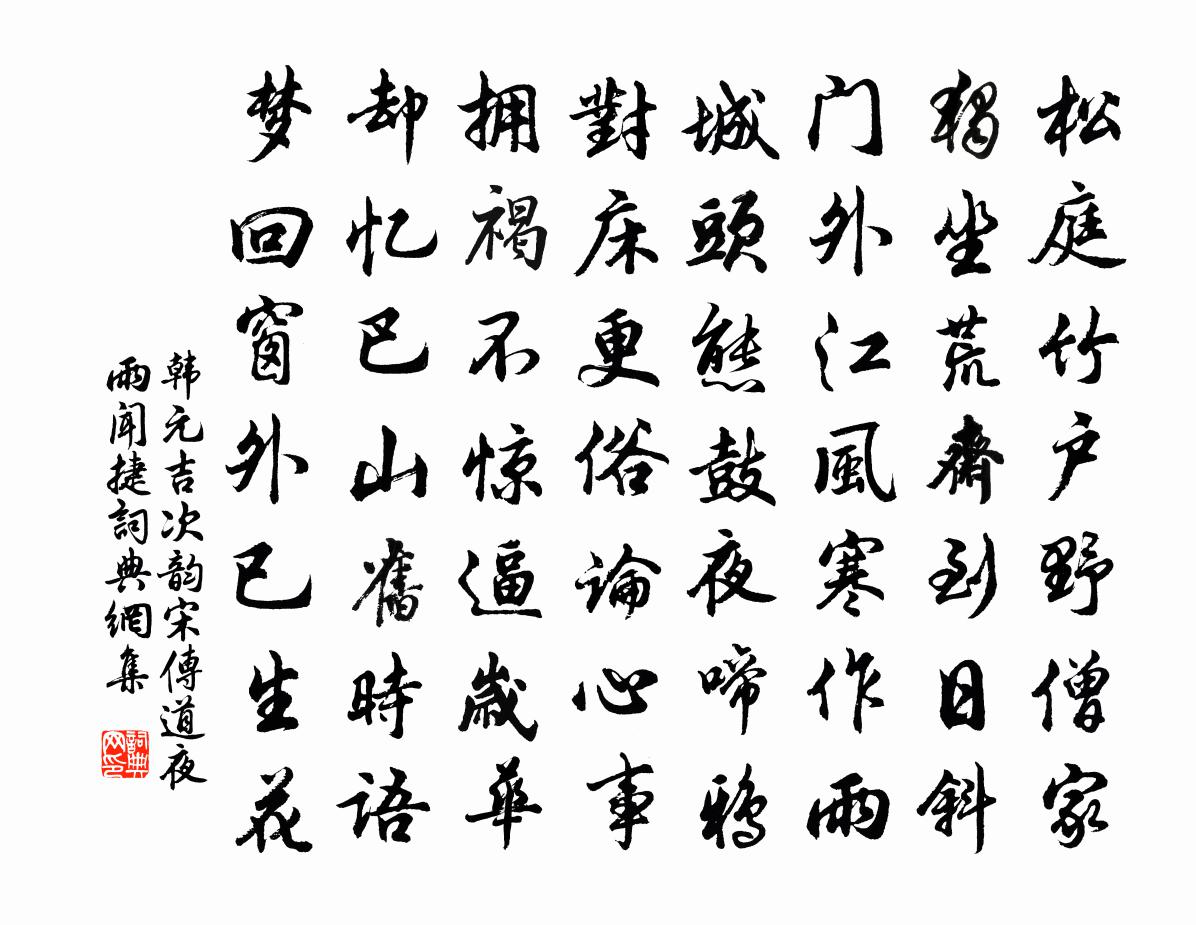 松庭竹户野僧家
独坐荒齋到日斜
门外江風寒作雨
城頭熊鼓夜啼鸦
對床更俗論心事
拥褐不惊逼歲華
却忆巴山舊時语
梦回窗外已生花
韩元吉次韵宋傳道夜
雨闻捷詞典網集
詞典
网印